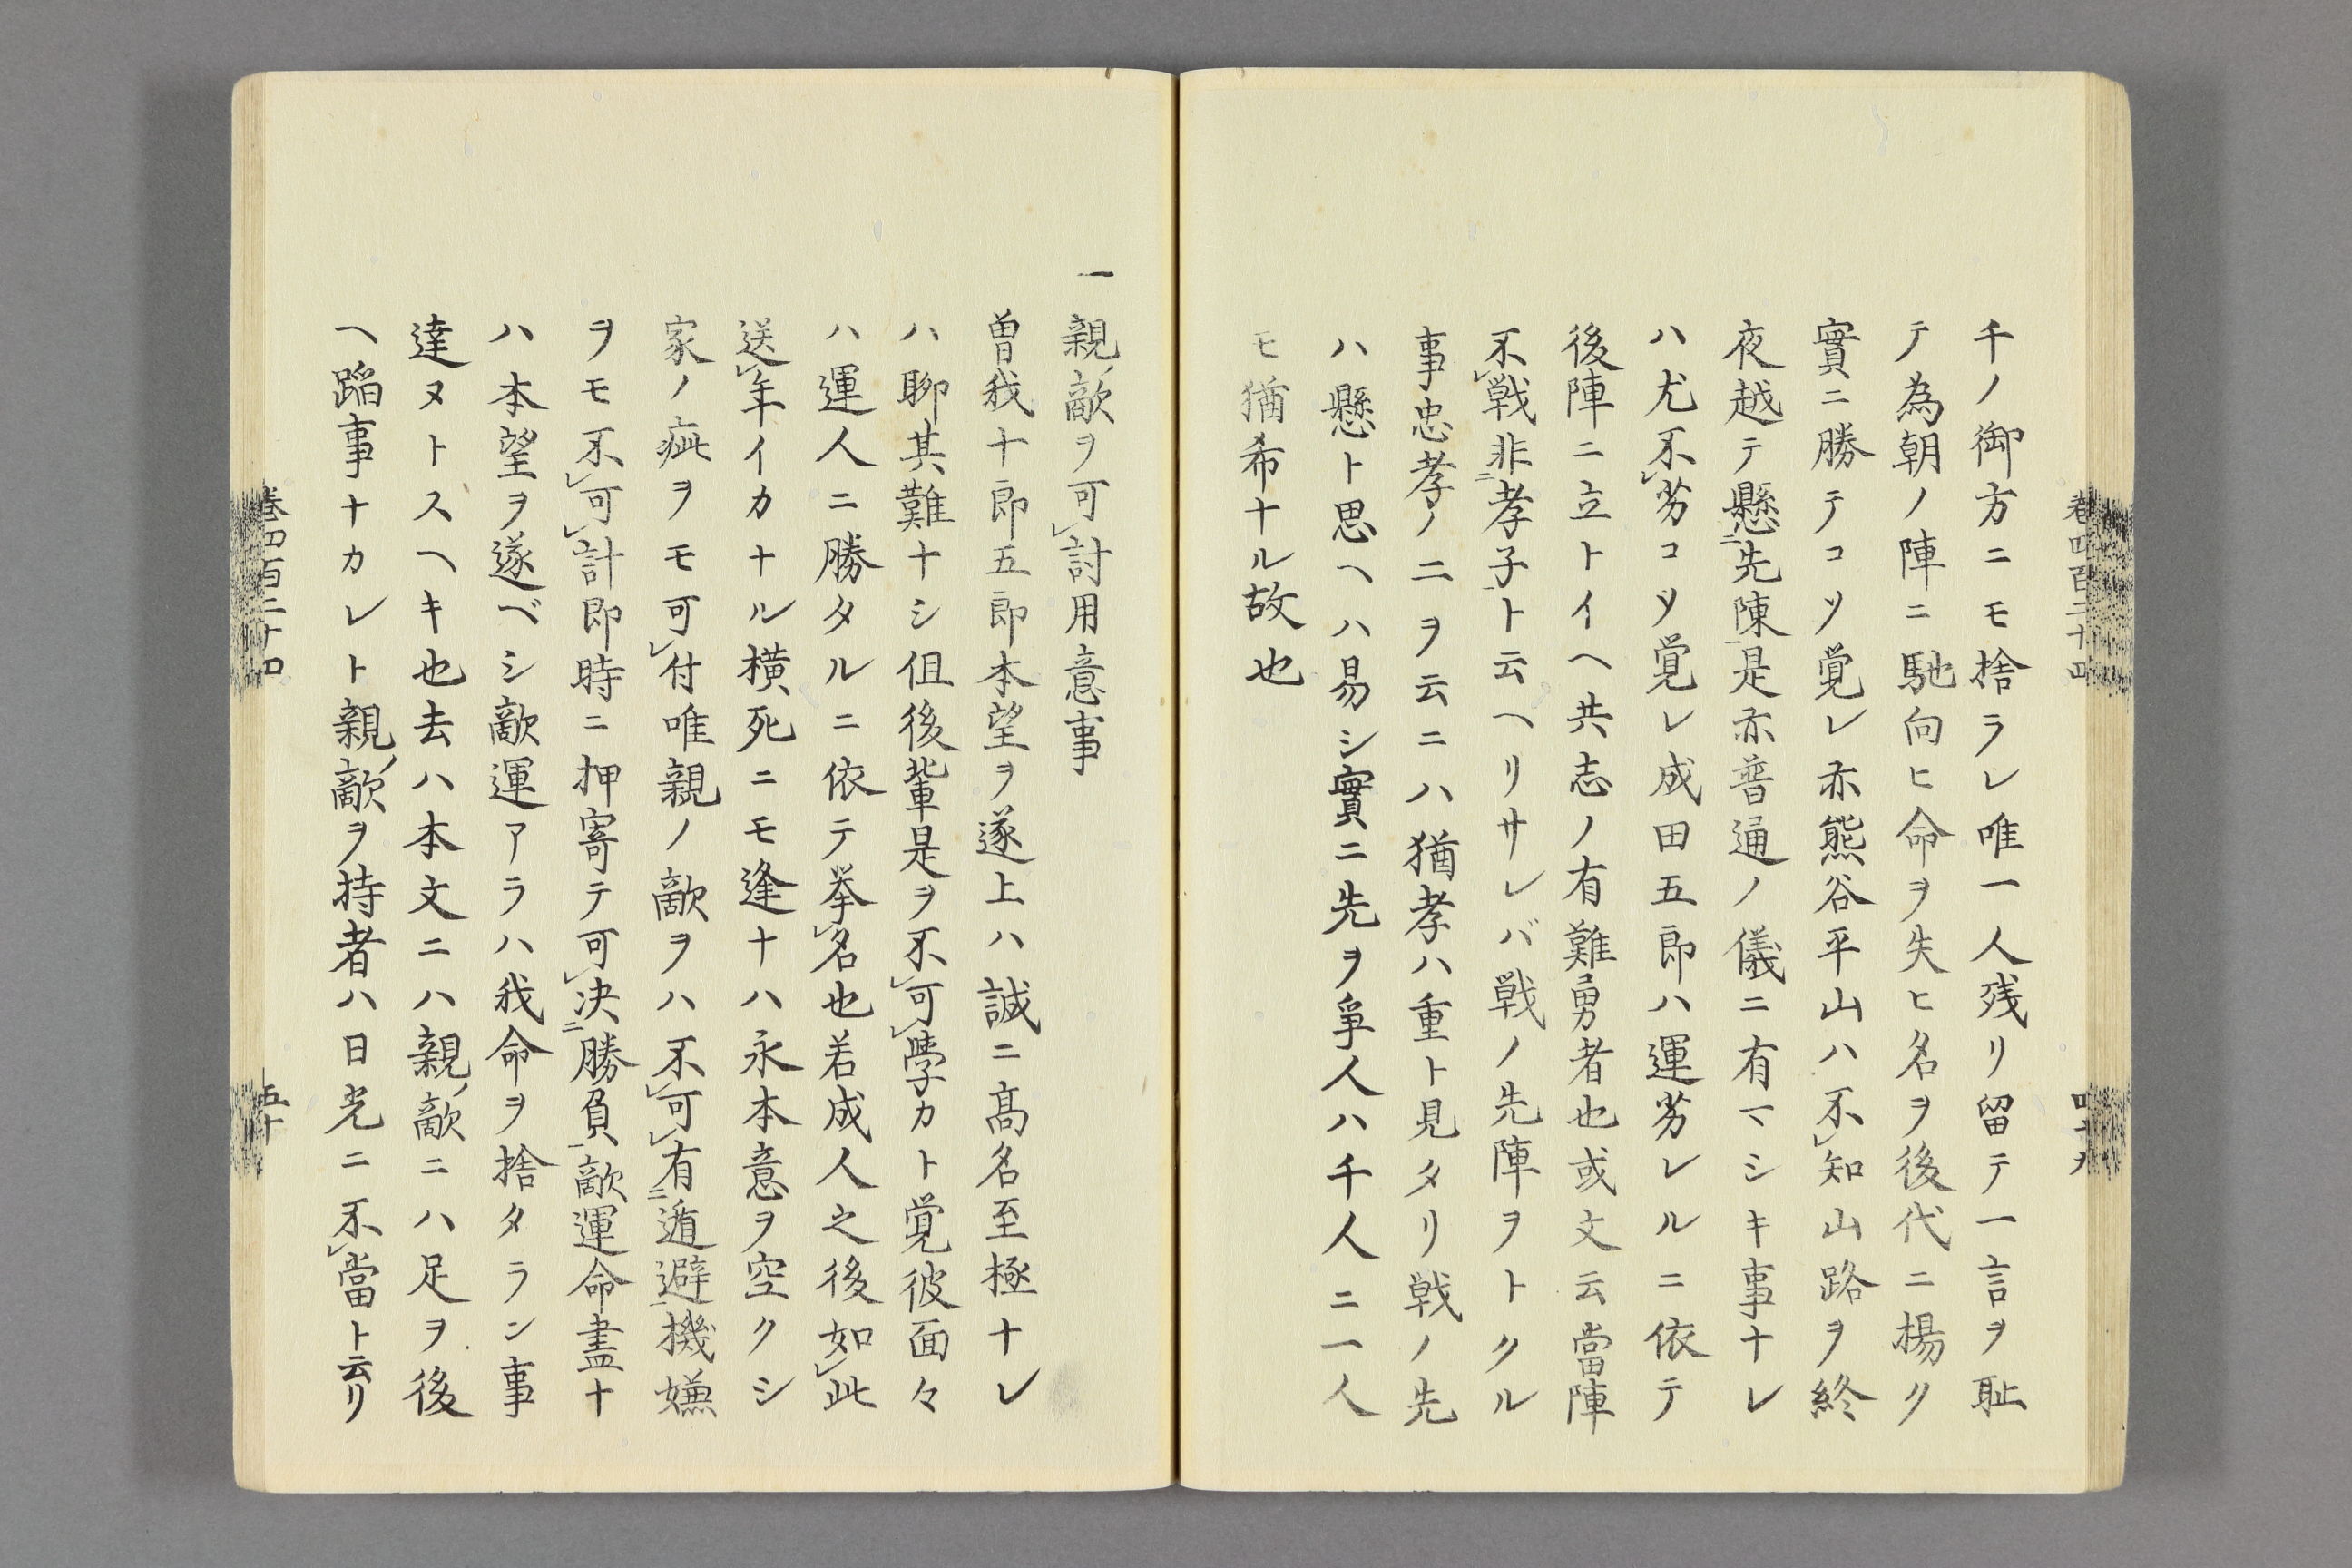 千ノ御方ニモ捨ラレ唯一人残リ留テ一言ヲ耻
テ為朝ノ陣ニ馳向ヒ命ヲ失ヒ名ヲ後代ニ揚ク
實ニ勝テコソ覚レ亦熊谷平山ハ不㆑知山路ヲ終
夜越テ懸㆓先陳㆒是亦普通ノ儀ニ有マシキ事ナレ
ハ尤不㆑劣コソ覚レ成田五郎ハ運劣レルニ依テ
後陣ニ立トイヘ共志ノ有難勇者也或文云當陣
不㆑戦非㆓孝子㆒ト云ヘリサレバ戦ノ先陣ヲトクル
事忠孝ノ二ヲ云ニハ猶孝ハ重ト見タリ戦ノ先
ハ懸ト思ヘハ易シ實ニ先ヲ爭人ハ千人ニ一人
モ猶希ナル故也
一親ノ敵ヲ可㆑討用意事
曽我十郎五郎本望ヲ遂上ハ誠ニ髙名至極ナレ
ハ聊其難ナシ但後輩是ヲ不㆑可㆑學カト覚彼面々
ハ運人ニ勝タルニ依テ挙㆑名也若成人之後如㆑此
送㆑年イカナル横死ニモ逢ナハ永本意ヲ空クシ
家ノ疵ヲモ可㆑付唯親ノ敵ヲハ不㆑可㆑有㆓遁避㆒機嫌
ヲモ不㆑可㆑計即時ニ押寄テ可㆑决㆓勝負㆒敵運命盡ナ
ハ本望ヲ遂ベシ敵運アラハ我命ヲ捨タラン事
達ヌトスヘキ也去ハ本文ニハ親ノ敵ニハ足ヲ後
ヘ蹈事ナカレト親ノ敵ヲ持者ハ日光ニ不㆑當ト云リ